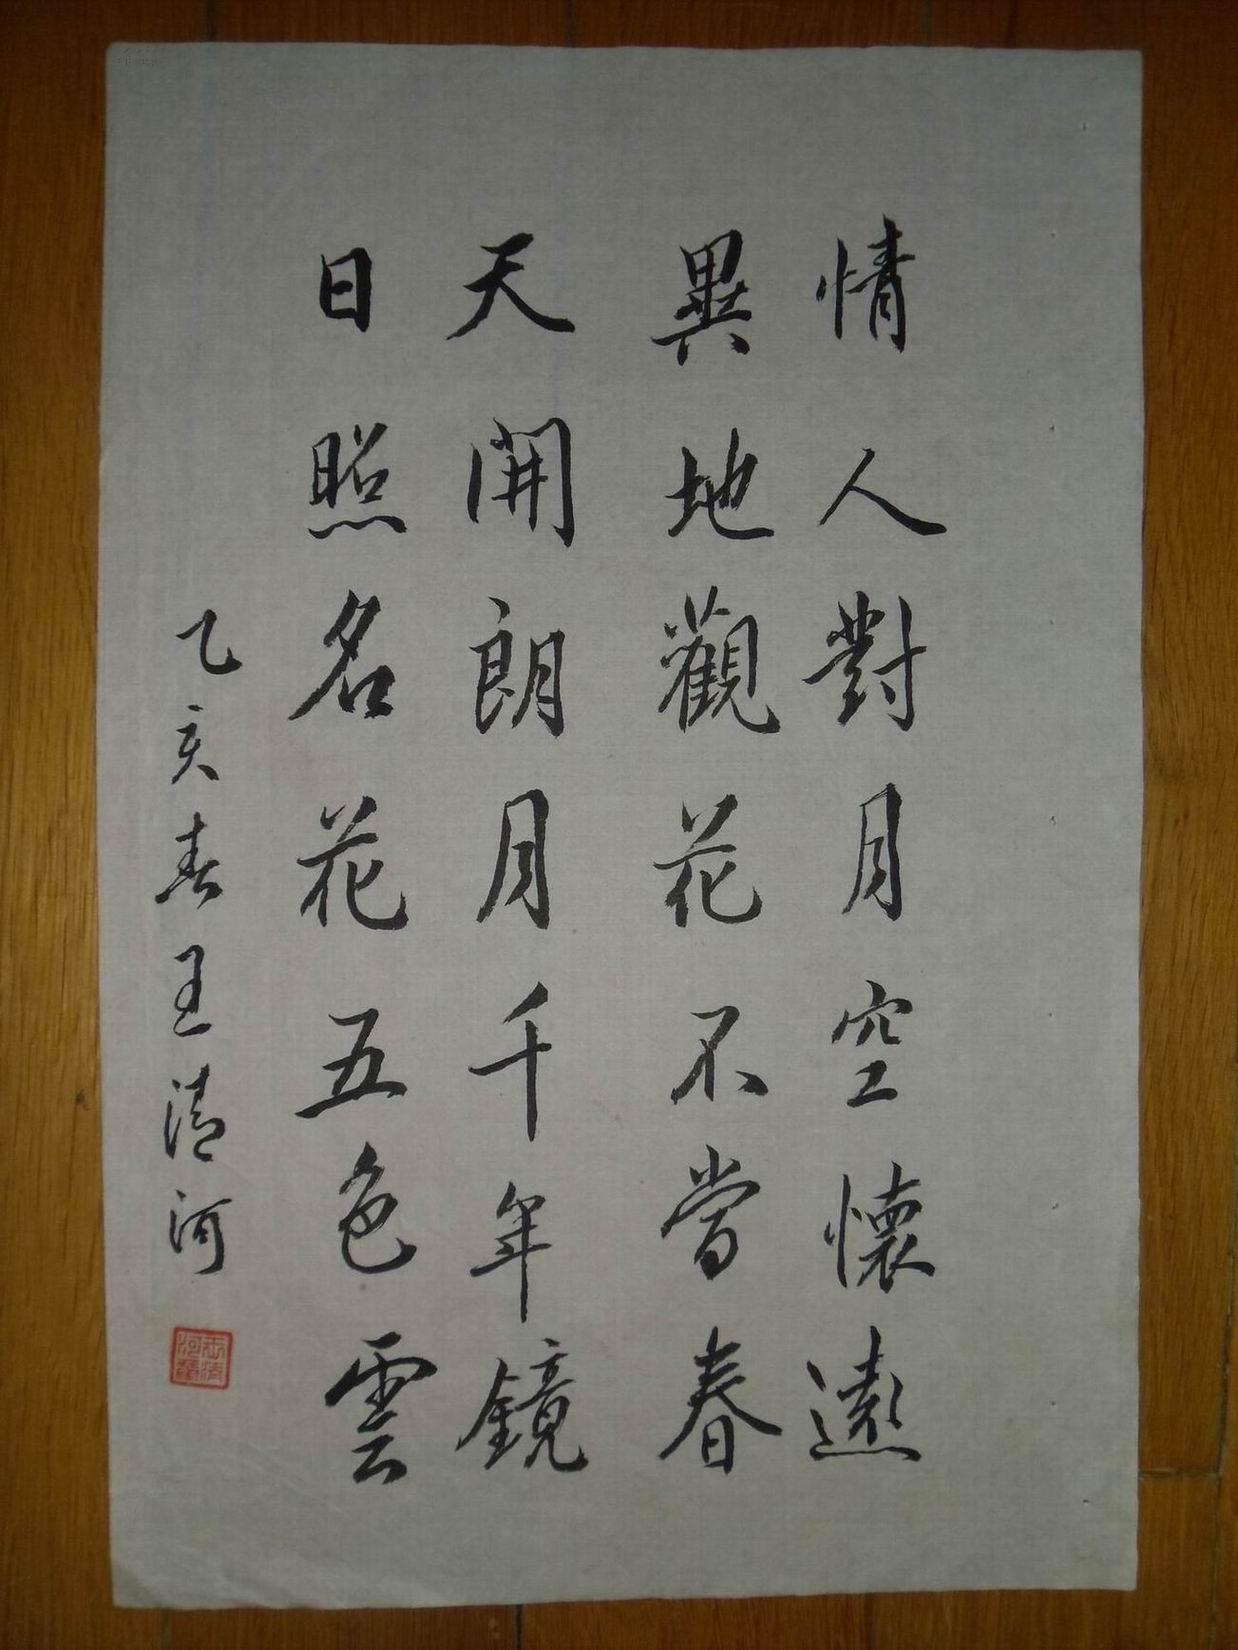 情人對月空懷遠
異地觀花不當春
天開朗月千年鏡
日照名花五色雲
乙亥春王清河